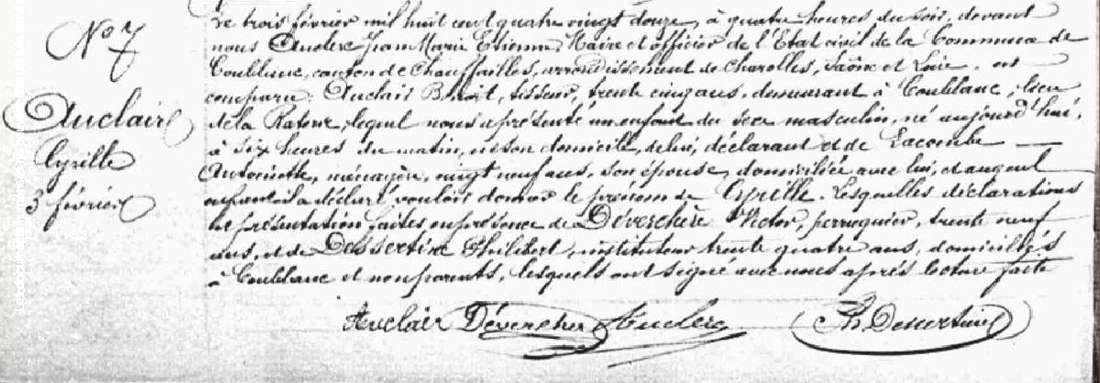 N° 7
Auclair
Cyrille
3 février
Le trois février mil huit cent quatre vingt douze, à quatre heures du soir, devant
nous Auclerc Jean Marie Etienne, Maire et officier de l'Etat civil de la Commune de
Coublanc, canton de Chauffailles, arrondissement de Charolles, Saône et Loire, est
comparu Auclair Benoit, tisseur, trente cinq ans, demeurant à Coublanc, lieu
de la, lequel nous a présenté un enfant du sexe masculin, né aujourd'hui,
à six heures du matin, en son domicile, de lui, déclarant et de Lacombe
Antoinette, ménagère, vingt neuf ans, son épouse, domiciliée avec lui, et auquel
enfant il a déclaré vouloir donner le prénom de Cyrille. Lesquelles déclarations
et présentation faites en présence de Déverchère Victor, perruquier, trente neuf
ans, et de Dessertine Philibert, instituteur trente quatre ans, domiciliés
à Coublanc et non parents, lesquels ont signé avec nous après lecture faite
Auclair Déverchere Auclerc Ph Dessertine